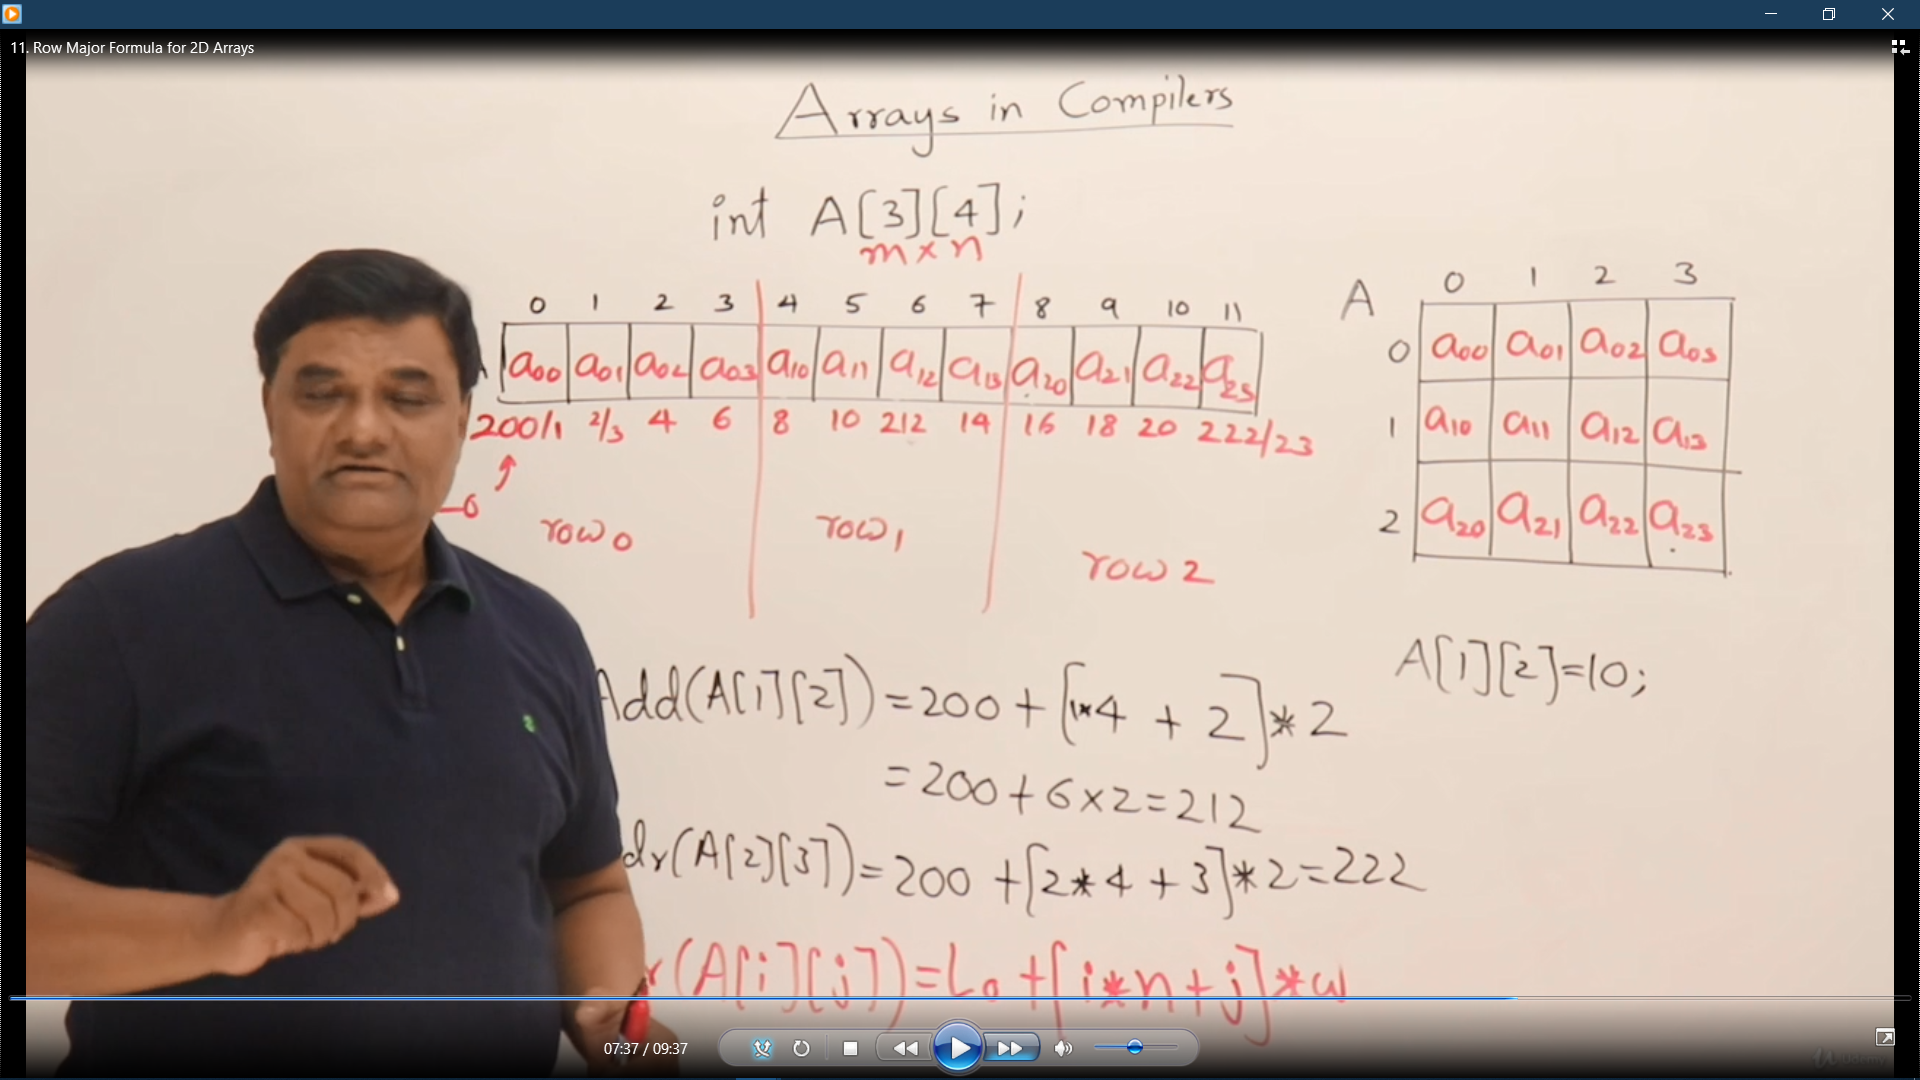 11. Row Major Formula for 2D Arrays
Arrays in Compilers
int A[3][4];
m×n
0 1 2 3 4 5 6 7 8 9 10 11
a00 a01 a02 a03 a10 a11 a12 a13 a20 a21 a22 a23
200/1 2/3 4 6 8 10 212 14 16 18 20 222/23
row0 row1 row2
A 0 1 2 3
0 a00 a01 a02 a03
1 a10 a11 a12 a13
2 a20 a21 a22 a23
A[1][2]=10;
Add(A[1][2])=200+[1*4 + 2]*2
=200+6×2=212
dr(A[2][3])=200+[2*4+3]*2=222
r(A[i][j])=L0+[i*n+j]*w
07:37 / 09:37
udemy